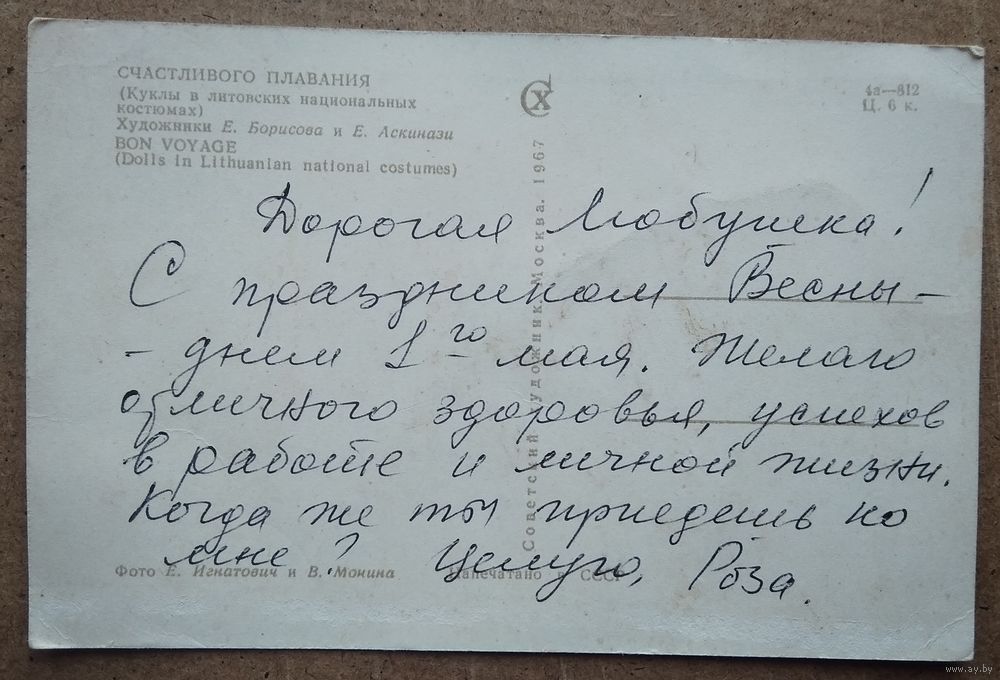 СЧАСТЛИВОГО ПЛАВАНИЯ
(Куклы в литовских национальных
костюмах)
Художники Е. Борисова и Е. Аскинази
BON VOYAGE
(Dolls in Lithuanian national costumes)
4а—812
Ц. 6 к.
Советский художник. Москва. 1967
Дорогая Любушка!
С праздником Весны –
– днем 1го мая. Желаю
отличного здоровья, успехов
в работе и личной жизни.
Когда же ты приедешь ко
мне? Целую, Роза.
Фото Е. Игнатович и В. Монина
Напечатано в СССР
www.ay.by